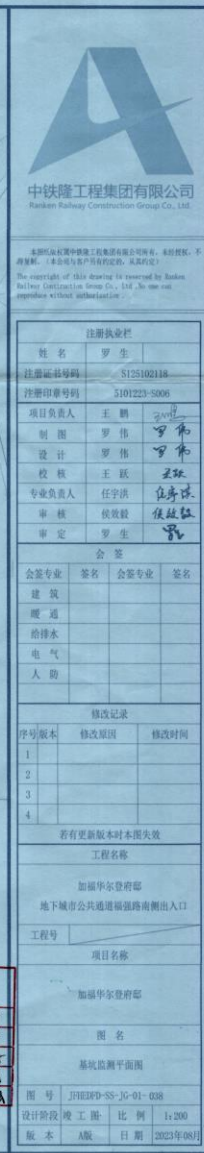 中铁隆工程集团有限公司
Ranken Railway Construction Group Co., Ltd.
本图纸版权属中铁隆工程集团有限公司所有，未经授权，不
得复制。（本公司与客户另有约定的，从其约定）
The copyright of this drawing is reserved by Ranken
Railway Construction Group Co., Ltd .No one can
reproduce without authorization .
注册执业栏
姓 名 罗 生
注册证书号码 S125102118
注册印章号码 5101223-S006
项目负责人 王 鹏
制 图 罗 伟 罗伟
设 计 罗 伟 罗伟
校 核 王 跃 王跃
专业负责人 任字洪
审 核 侯敛毅
审 定 罗 生
会 签
会签专业 签名 会签专业 签名
建 筑
暖 通
给排水
电 气
人 防
修改记录
序号 版本 修改原因 修改时间
1
2
3
4
若有更新版本时本图失效
工程名称
加福华尔登府邸
地下城市公共通道福强路南侧出入口
工程号
项目名称
加福华尔登府邸
图 名
基坑监测平面图
图 号 JFHEDFD-SS-JG-01-038
设计阶段 竣工图 比 例 1:200
版 本 A版 日 期 2023年08月